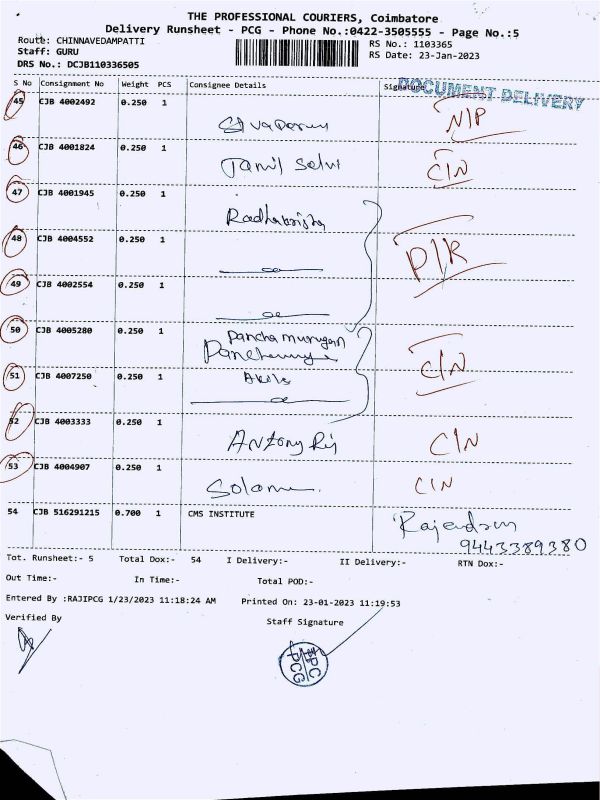 THE PROFESSIONAL COURIERS, Coimbatore
Delivery Runsheet - PCG - Phone No.:0422-3505555 - Page No.:5
Route: CHINNAVEDAMPATTI
RS No.: 1103365
Staff: GURU
RS Date: 23-Jan-2023
DRS No.: DCJB110336505
S No Consignment No Weight PCS Consignee Details Signature
DOCUMENT DELIVERY
45 CJB 4002492 0.250 1 N/P
46 CJB 4001824 0.250 1 Tamil Selvi C/N
47 CJB 4001945 0.250 1
48 CJB 4004552 0.250 1 D/R
49 CJB 4002554 0.250 1
50 CJB 4005280 0.250 1 Panchamurugan
C/N
51 CJB 4007250 0.250 1 Akila
52 CJB 4003333 0.250 1 Antony Raj C/N
53 CJB 4004907 0.250 1 C/N
54 CJB 516291215 0.700 1 CMS INSTITUTE Rajendran
9443389380
Tot. Runsheet:- 5 Total Dox:- 54 I Delivery:- II Delivery:- RTN Dox:-
Out Time:- In Time:- Total POD:-
Entered By :RAJIPCG 1/23/2023 11:18:24 AM Printed On: 23-01-2023 11:19:53
Verified By Staff Signature